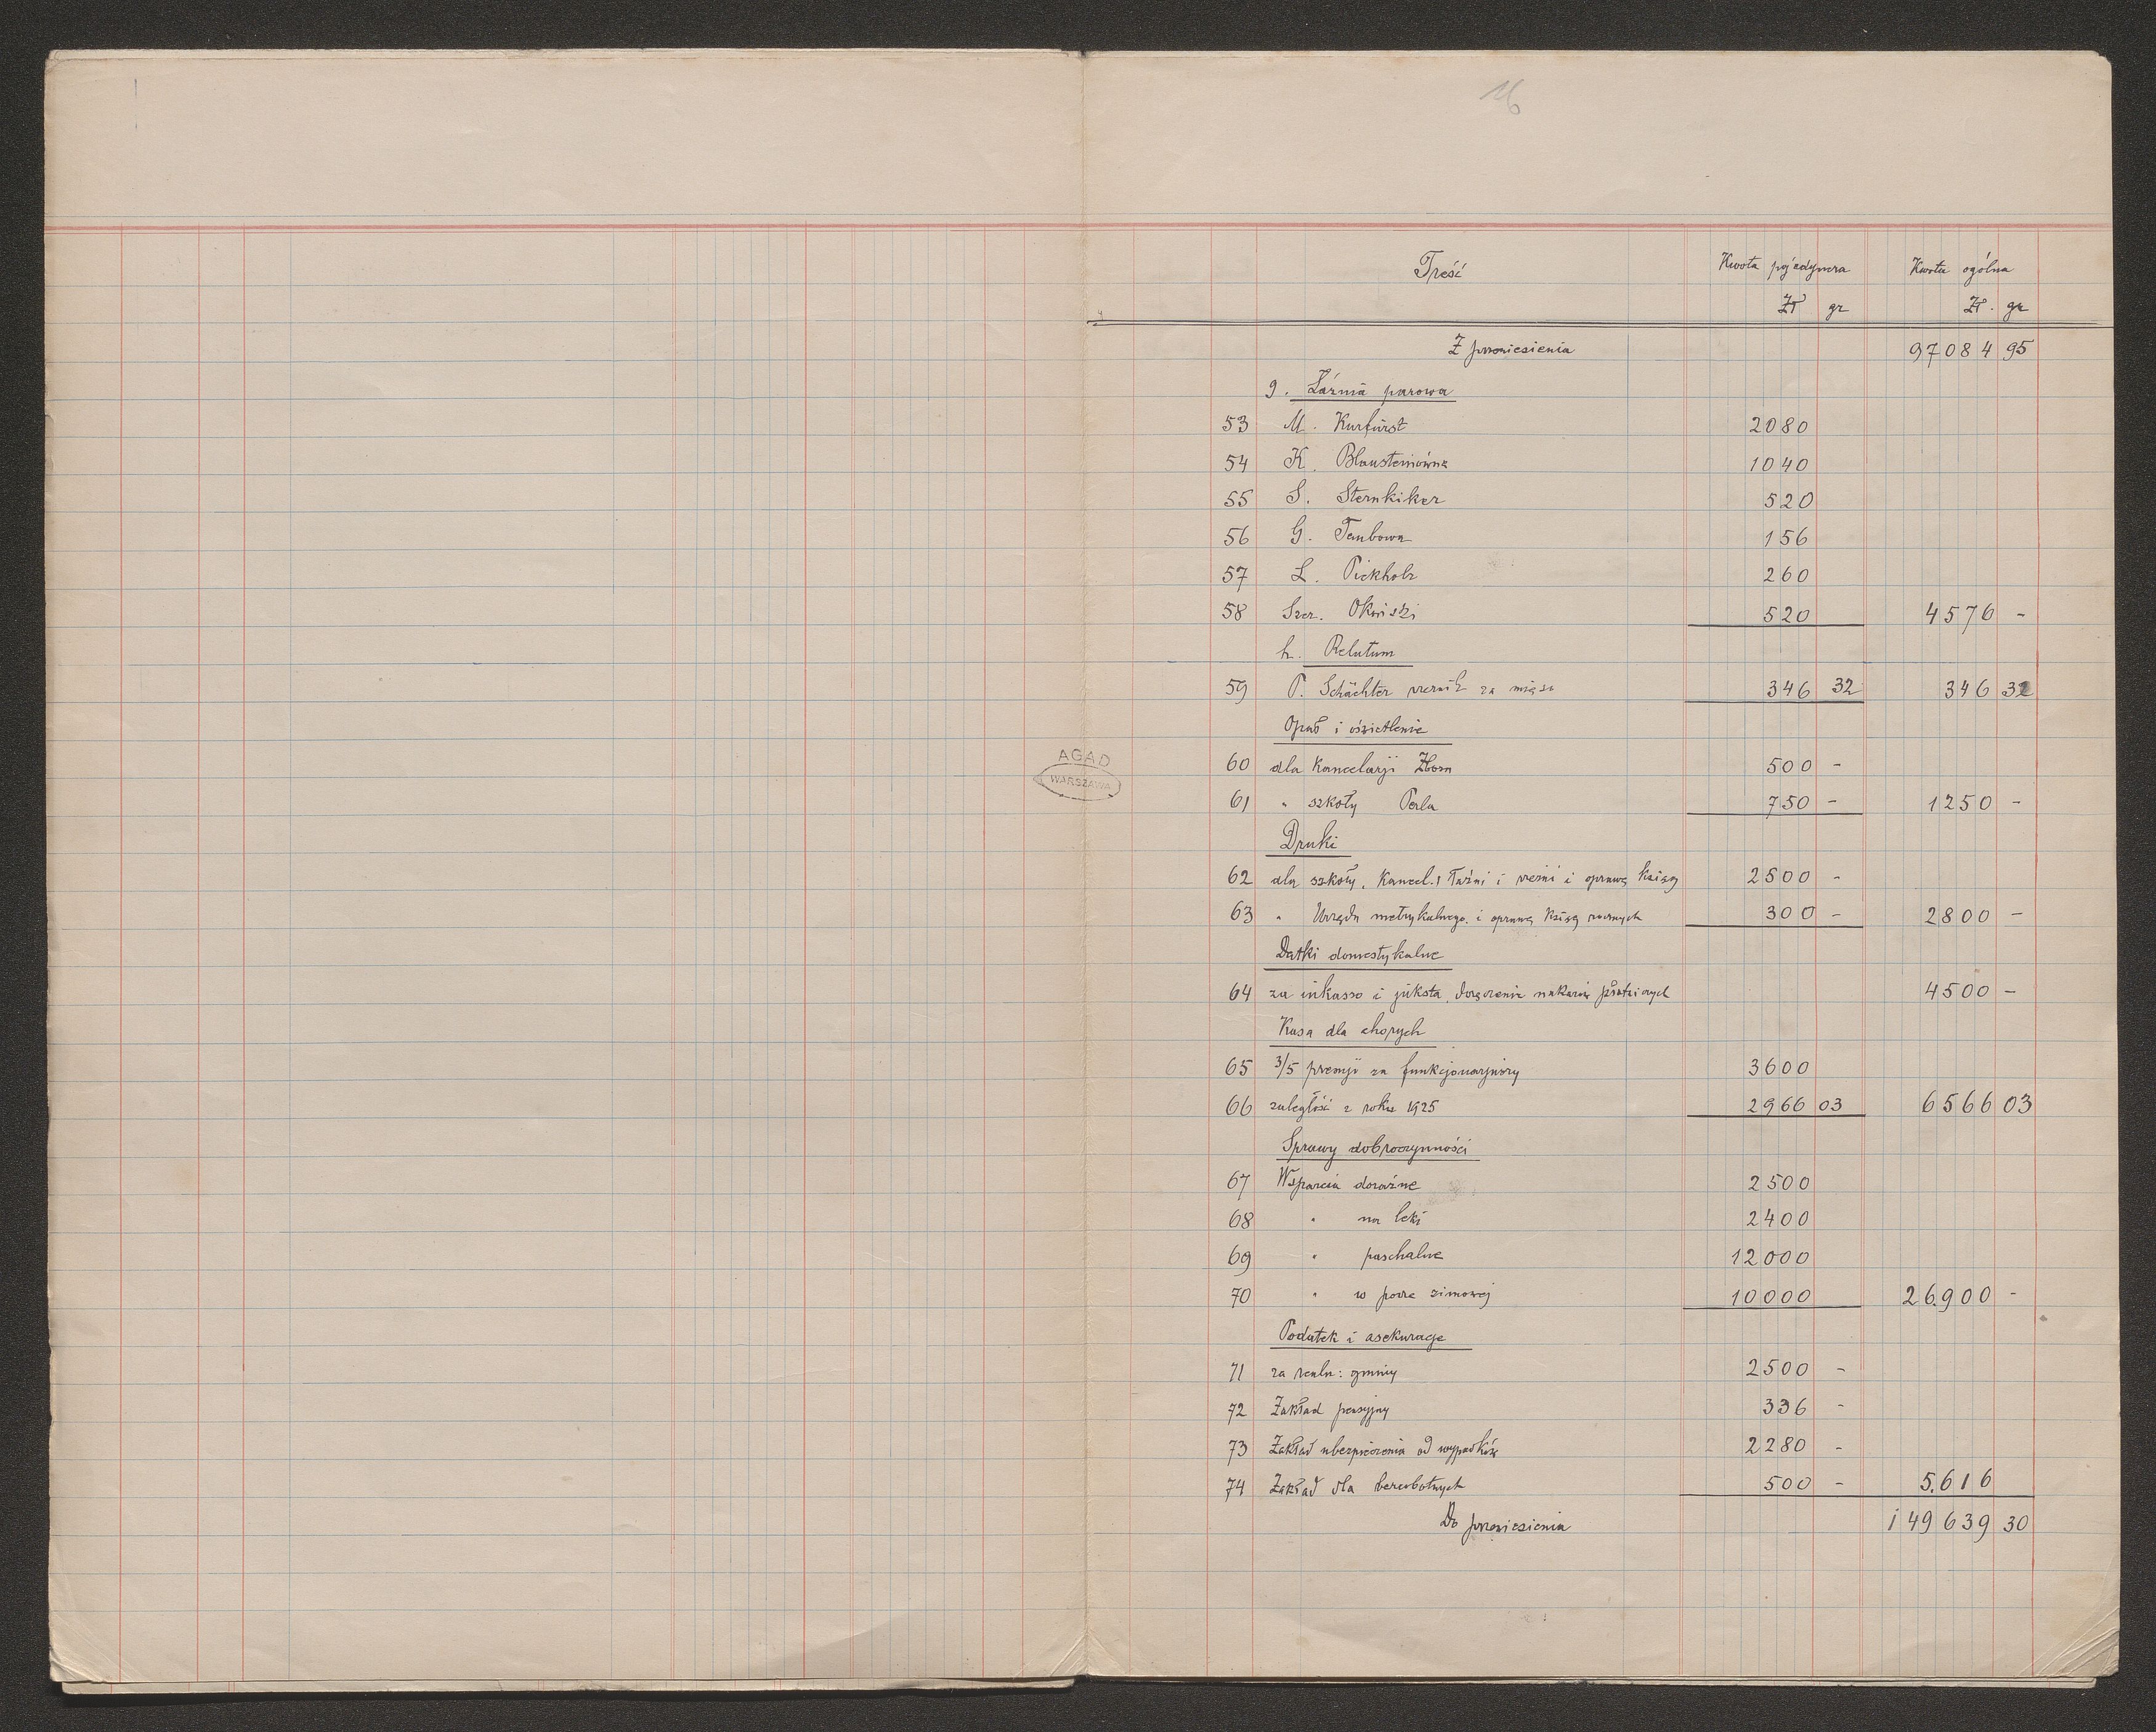 16
Treść Kwota pojedyncza Kwota ogólna
Zł gr Zł. gr
Z przeniesienia 97084 95
g. Łaźnia parowa
53 M. Kurfürst 2080
54 K. Blausteinówna 1040
55 S. Sternkiker 520
56 G. Taubowa 156
57 L. Pickholz 260
58 Szcz. Okniński 520 4576 -
h. Relutum
59 P. Schächter rzeźnik za mięso 346 32 346 32
Opał i oświetlenie
60 dla Kancelarji Zboru 500 -
61 " szkoły Perla 750 - 1250 -
Druki
62 dla szkoły, Kancel., łaźni i rzeźni i oprawę ksiąg 2500 -
63 " Urzędu metrykalnego i oprawę ksiąg 300 - 2800 -
Datki domestykalne
64 za inkasso i juksta, doręczenie nakazów płatniczych 4500 -
Kasa dla chorych
65 3/5 premji za funkcjonarjuszy 3600
66 zaległość z roku 1925 2966 03 6566 03
Sprawy dobroczynności
67 Wsparcia doraźne 2500
68 " na leki 2400
69 " paschalne 12000
70 " w porze zimowej 10000 26.900 -
Podatek i asekuracje
71 za realn: gminy 2500 -
72 Zakład pensyjny 336 -
73 Zakład ubezpieczenia od wypadków 2280 -
74 Zakład dla bezrobotnych 500 - 5.616
Do przeniesienia 149639 30
AGAD
WARSZAWA